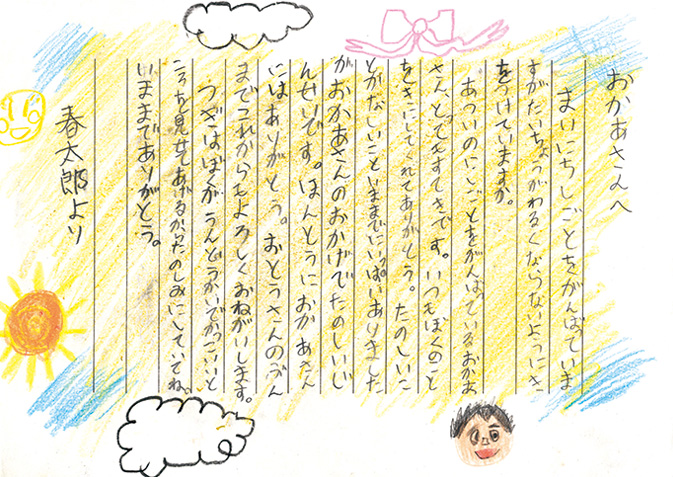 おかあさんへ
まいにちしごとをがんばていま
すがたいちょうがわるくならないようにき
をつけていますか。
あついのにしごとをがんばっているおかあ
さん、とってもすてきです。いつもぼくのこと
をきにしてくれてありがとう。たのしいこ
とかなしいこといままでにいっぱいありました
がおかあさんのおかげでたのしいじ
んせいです。ほんとうにおかあさん
にはありがとう。おとうさんのぶん
までこれからもよろしくおねがいします。
つぎはぼくがうんどうかいでかっこいいと
ころを見せてあげるからたのしみにしていてね。
いままでありがとう。
春太郎より